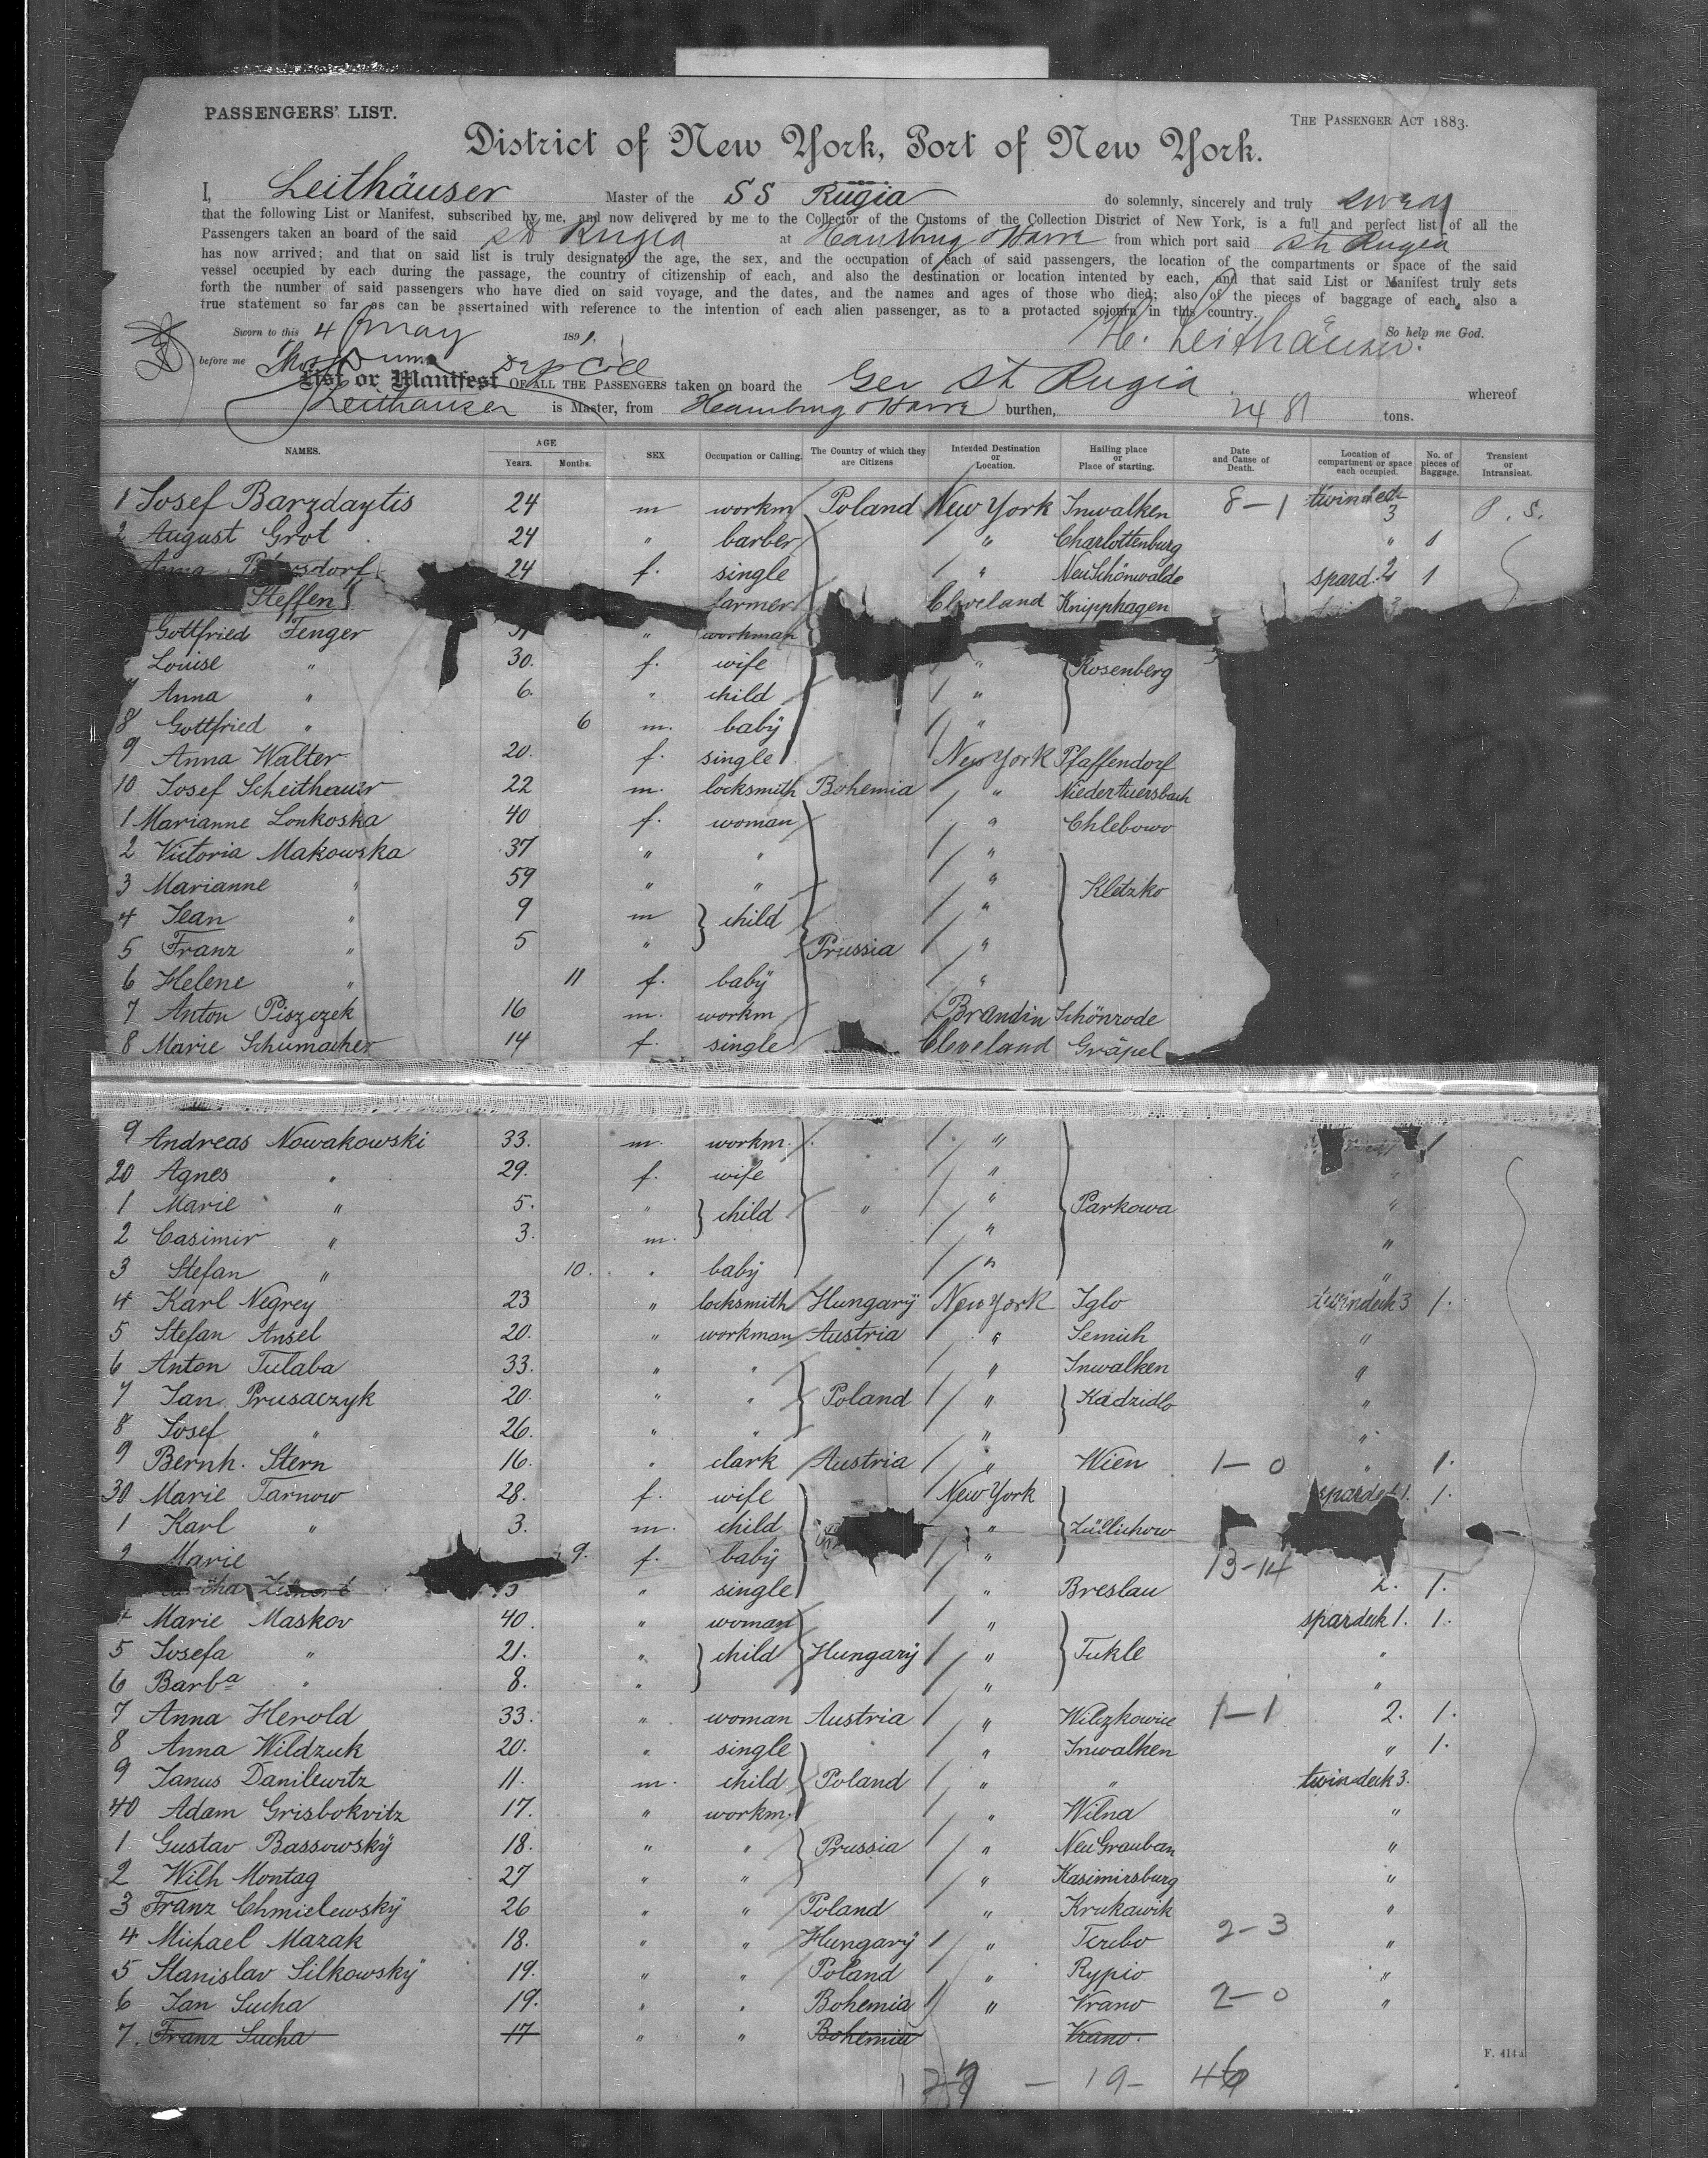 PASSENGERS' LIST.
THE PASSENGER ACT 1883.
District of New York, Port of New York.
I, Leithäuser Master of the SS Rugia do solemnly, sincerely and truly swear
that the following List or Manifest, subscribed by me, and now delivered by me to the Collector of the Customs of the Collection District of New York, is a full and perfect list of all the
Passengers taken an board of the said St Rugia at Hamburg & Havre from which port said St Rugia
has now arrived; and that on said list is truly designated the age, the sex, and the occupation of each of said passengers, the location of the compartments or space of the said
vessel occupied by each during the passage, the country of citizenship of each, and also the destination or location intented by each, and that said List or Manifest truly sets
forth the number of said passengers who have died on said voyage, and the dates, and the names and ages of those who died; also of the pieces of baggage of each, also a
true statement so far as can be assertained with reference to the intention of each alien passenger, as to a protacted sojourn in this country.
Sworn to this 4 May 1891. H. Leithäuser. So help me God.
before me Thos Dep Coll
List or Manifest OF ALL THE PASSENGERS taken on board the Ger St Rugia whereof
Leithauser is Master, from Hamburg & Havre burthen, 2481 tons.
NAMES. AGE Years. Months. SEX Occupation or Calling. The Country of which they are Citizens Intended Destination or Location. Hailing place or Place of starting. Date and Cause of Death. Location of compartment or space each occupied. No. of pieces of Baggage. Transient or Intransient.
1 Josef Barzdaytis 24 m workm Poland New York Inwalken 8-1 twindeck 3 P. S.
2 August Grot 24 " barber " Charlottenburg " 1
Anna dorf 24 f. single " Neu Schönwalde spard. 2 1
Steffen farmer Cleveland Knipphagen
Gottfried Fenger " workman
Louise " 30. f. wife " Rosenberg
7 Anna " 6. " child "
8 Gottfried " 6 m. baby "
9 Anna Walter 20. f. single New York Pfaffendorf
10 Josef Scheithauer 22 m. locksmith Bohemia " Niedertuersbach
1 Marianne Lonkoska 40 f. woman " Chlebowo
2 Victoria Makowska 37 " " "
3 Marianne " 59 " " " Kletzko
4 Jean " 9 m child "
5 Franz " 5 " Prussia "
6 Helene " 11 f. baby "
7 Anton Piszczek 16 m. workm Brandin Schönrode
8 Marie Schumacher 14 f. single Cleveland Gräpel
9 Andreas Nowakowski 33. m. workm. " 1
20 Agnes " 29. f. wife "
1 Marie " 5. " child " " Parkowa "
2 Casimir " 3. m. " "
3 Stefan " 10. " baby " "
4 Karl Negrey 23 " locksmith Hungary New York Iglo twindeck 3 1.
5 Stefan Ansel 20. " workman Austria " Semich "
6 Anton Tulaba 33. " " " Inwalken "
7 Jan Prusaczyk 20. " " Poland " Kadzidlo "
8 Josef " 26. " " " "
9 Bernh. Stern 16. " clark Austria " Wien 1-0 " 1.
30 Marie Tarnow 28. f. wife New York spardek 1. 1.
1 Karl " 3. m. child " Züllichow
2 Marie 9. f. baby " 13-14
" single " Breslau 2. 1.
4 Marie Maskov 40. " woman " spardek 1. 1.
5 Josefa " 21. " child Hungary " Tukle "
6 Barba " 8. " " "
7 Anna Herold 33. " woman Austria " Wilczkowice 1-1 2. 1.
8 Anna Wildzuk 20. " single " Inwalken " 1.
9 Janus Danilewitz 11. m. child Poland " " twindeck 3.
40 Adam Grisbokvitz 17. " workm. " Wilna "
1 Gustav Bassowsky 18. " " Prussia " Neu Grauban "
2 Wilh Montag 27 " " " Kasimirsburg "
3 Franz Chmielewsky 26 " " Poland " Krukawik "
4 Michael Mazak 18. " " Hungary " Terebo 2-3 "
5 Stanislav Silkowsky 19. " " Poland " Rypio "
6 Jan Sucha 19. " " Bohemia " Vrano 2-0 "
7. Franz Sucha 17 " " Bohemia Vrano.
F. 414a
- 19- 46